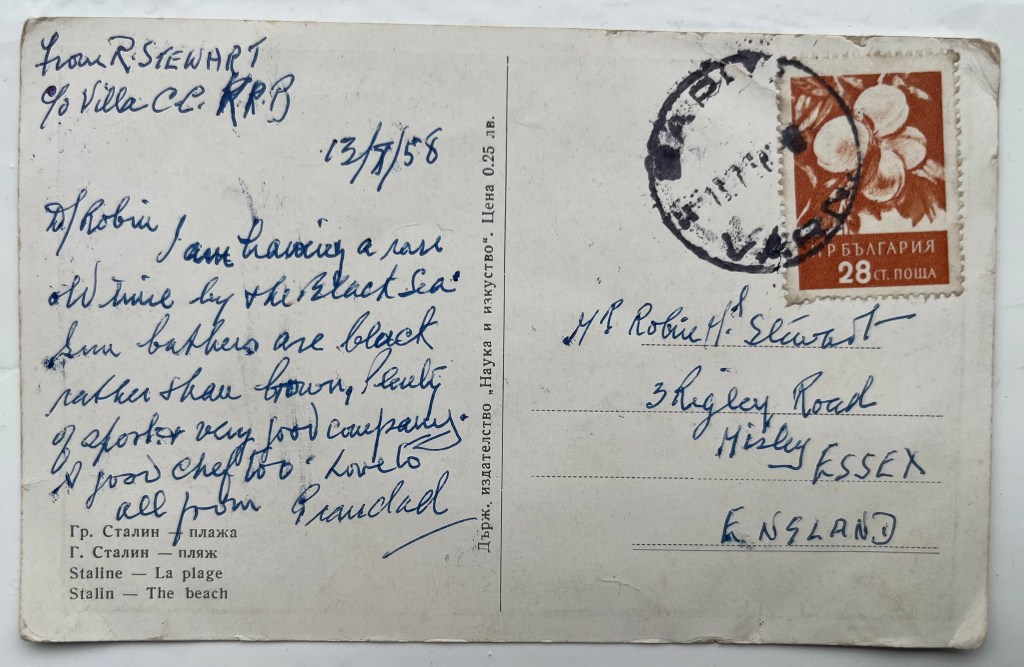 from R. STEWART
c/o Villa C.C. K.R.B
13/7/58
D/ Robin
I am having a rare
old time by the Black Sea.
Sun bathers are black
rather than brown, Plenty
of sport & very good company.
A good chef too. Love to
all from Grandad
Гр. Сталин — плажа
Г. Сталин — пляж
Staline — La plage
Stalin — The beach
Държ. издателство „Наука и изкуство“. Цена 0.25 лв.
НР БЪЛГАРИЯ
28 СТ. ПОЩА
Mr Robin Stewart
3 Rigley Road
Misley
ESSEX
ENGLAND